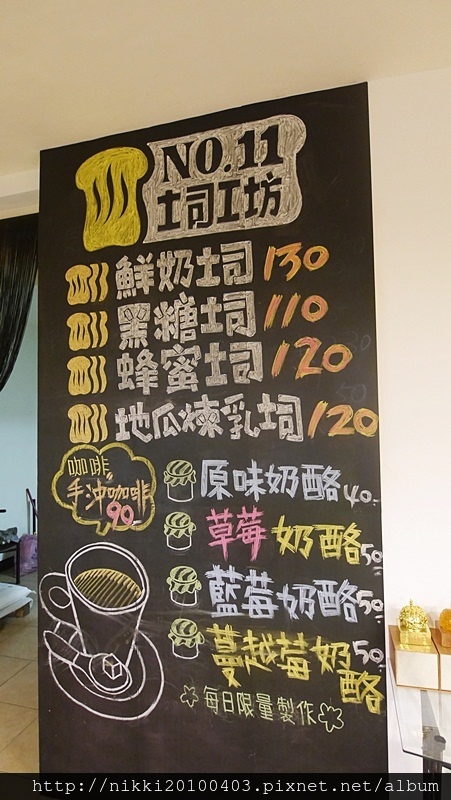 NO.11
土司工坊
鮮奶土司 130
黑糖土司 110
蜂蜜土司 120
地瓜煉乳土司 120
咖啡
手沖咖啡
90
原味奶酪 40
草莓奶酪 50
藍莓奶酪 50
蔓越莓奶酪 50
每日限量製作
http://nikki20100403.pixnet.net/album